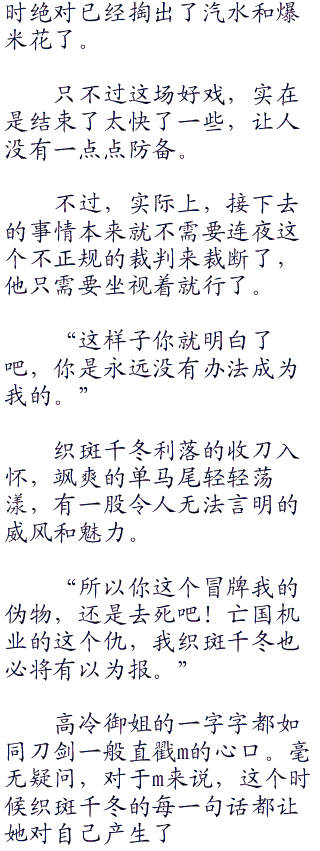 时绝对已经掏出了汽水和爆
米花了。
只不过这场好戏，实在
是结束了太快了一些，让人
没有一点点防备。
不过，实际上，接下去
的事情本来就不需要连夜这
个不正规的裁判来裁断了，
他只需要坐视着就行了。
“这样子你就明白了
吧，你是永远没有办法成为
我的。”
织斑千冬利落的收刀入
怀，飒爽的单马尾轻轻荡
漾，有一股令人无法言明的
威风和魅力。
“所以你这个冒牌我的
伪物，还是去死吧！亡国机
业的这个仇，我织斑千冬也
必将有以为报。”
高冷御姐的一字字都如
同刀剑一般直戳m的心口。毫
无疑问，对于m来说，这个时
候织斑千冬的每一句话都让
她对自己产生了